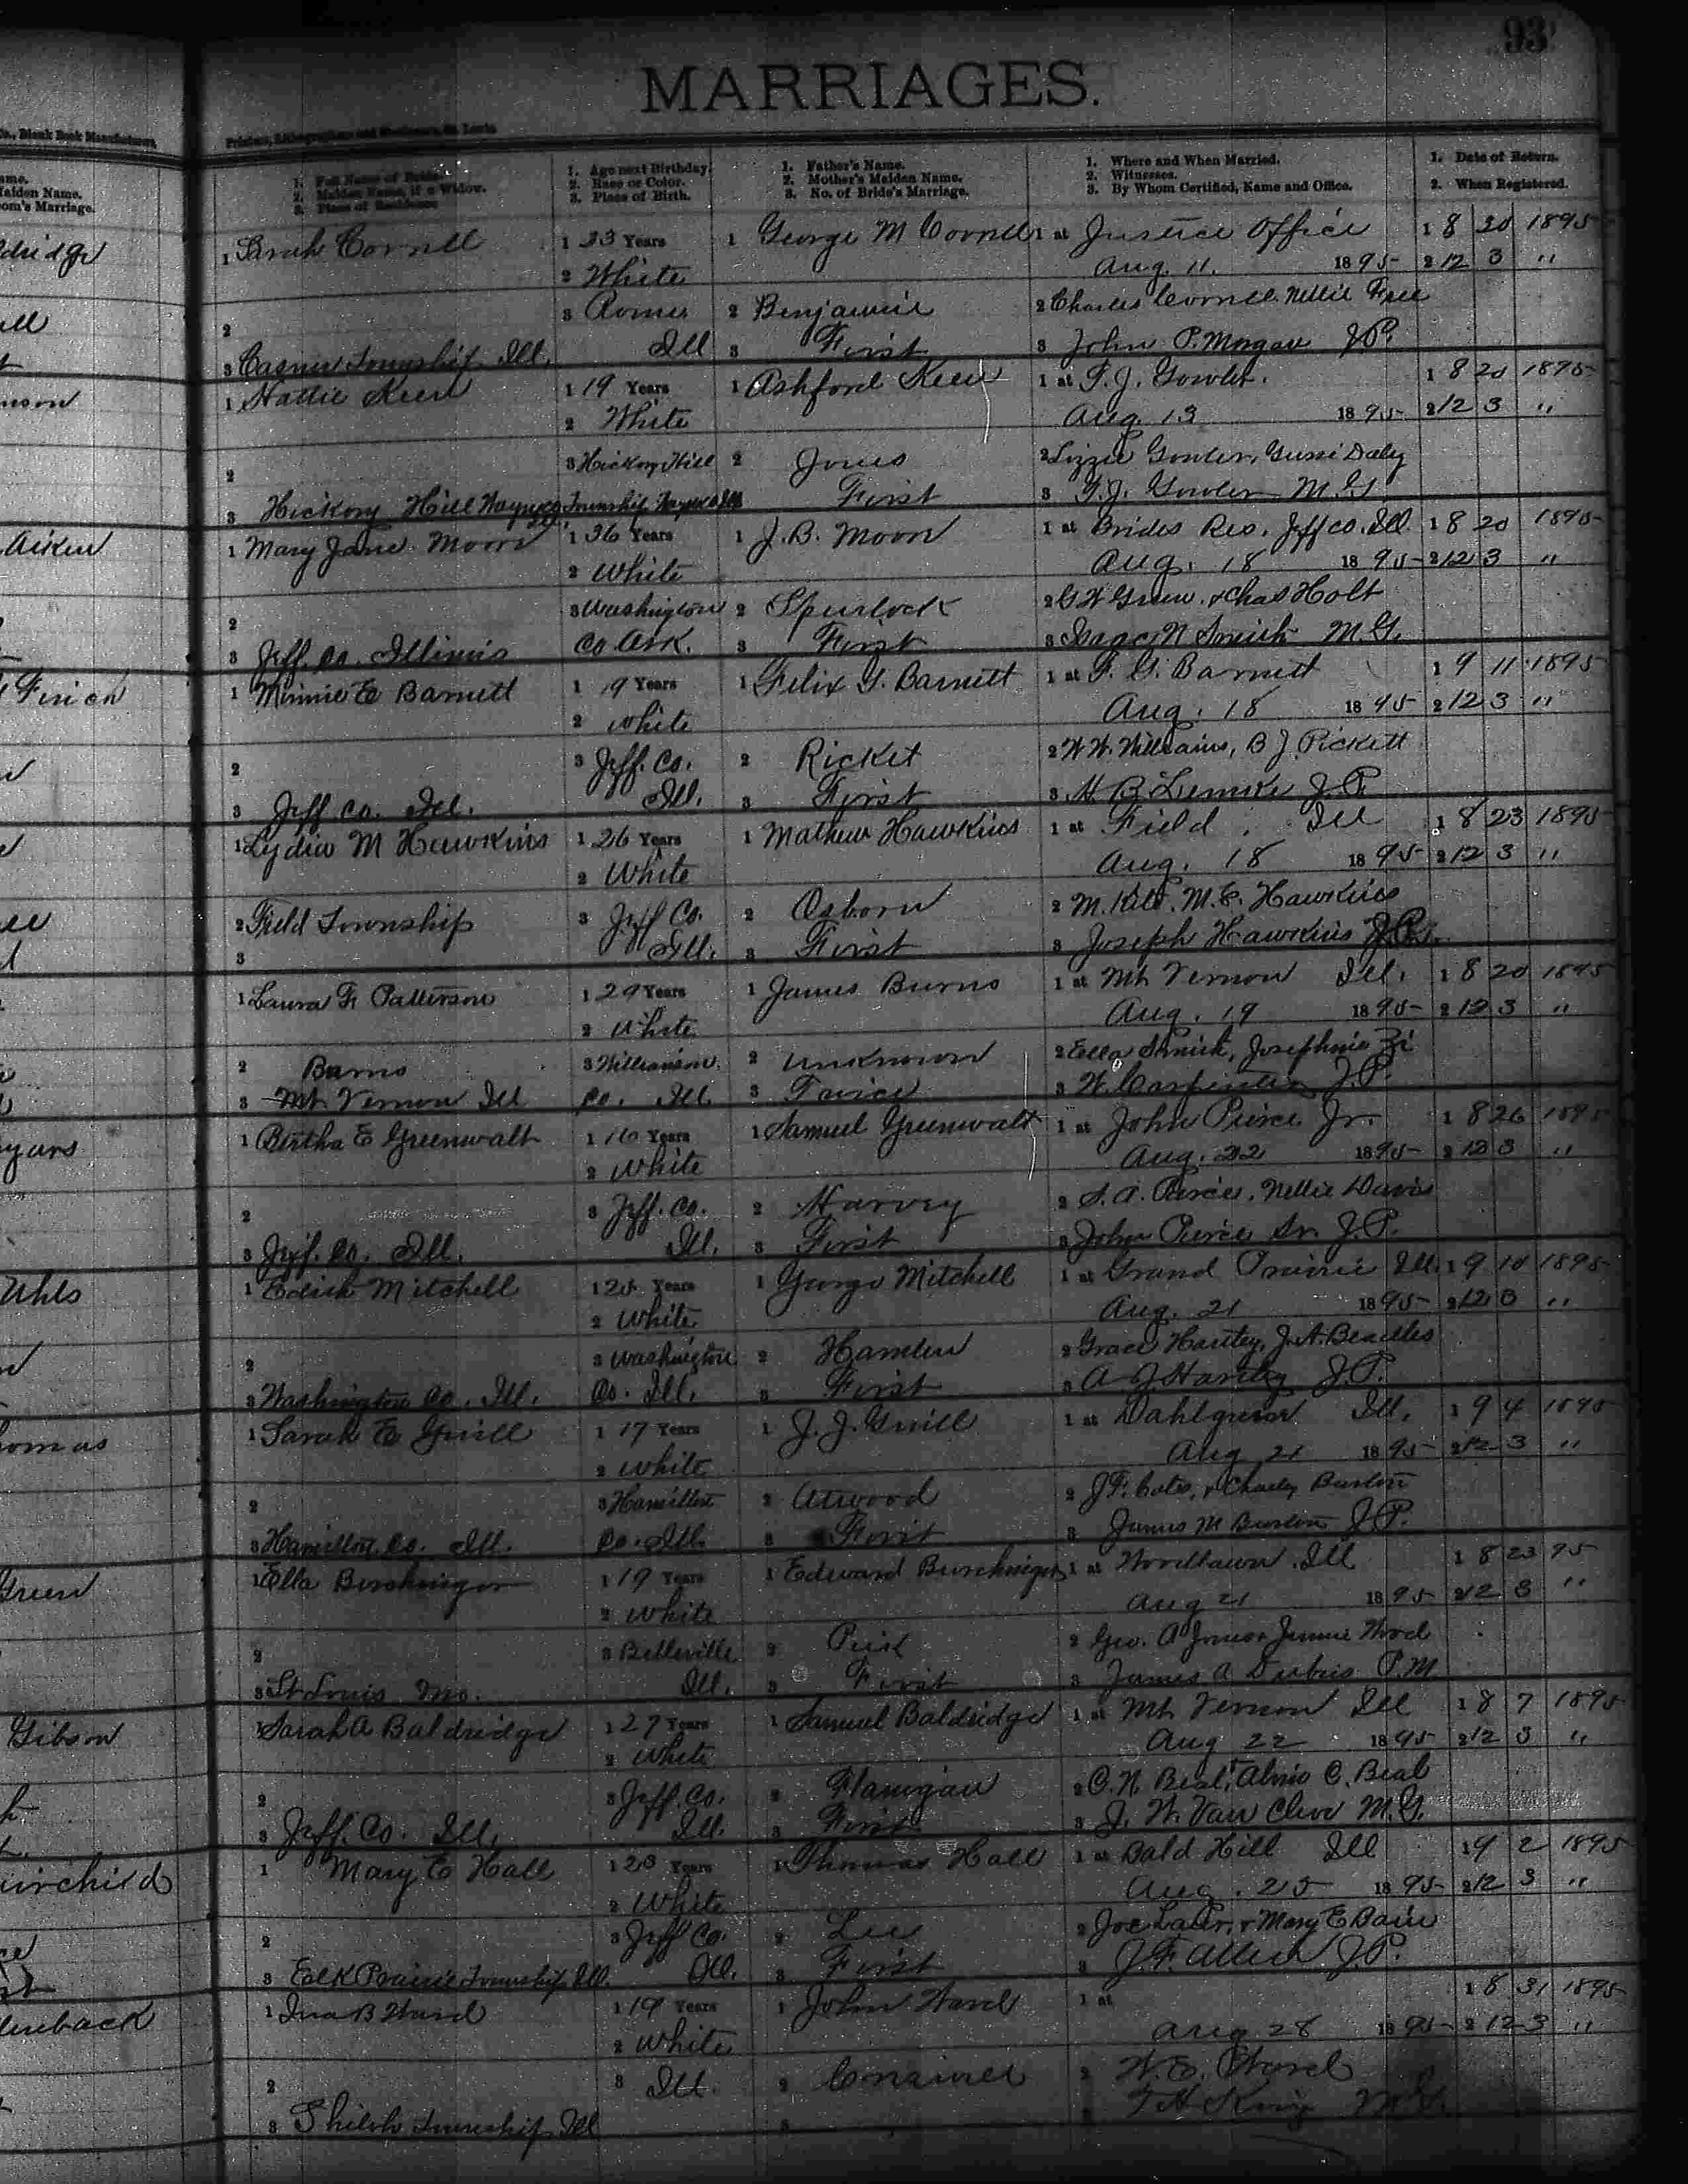 93
MARRIAGES.
Co., Blank Book Manufacturers,
Printers, Lithographers and Stationers, St. Louis
1. Full Name of Bride. 1. Age next Birthday. 1. Father's Name. 1. Where and When Married. 1. Date of Return.
Maiden Name. 2. Maiden Name, if a Widow. 2. Race or Color. 2. Mother's Maiden Name. 2. Witnesses. 2. When Registered.
oom's Marriage. 3. Place of Residence 3. Place of Birth. 3. No. of Bride's Marriage. 3. By Whom Certified, Name and Office.
1 Sarah Cornell 1 23 Years 1 George M Cornell 1 at Justice Office 1 8 20 1895
2 White Aug. 11. 1895 2 12 3 "
2 3 Rome 2 Benjamin 2 Charles Cornell. Nellie Free
3 Casner Township Ill. Ill 3 First 3 John P. Morgan J.P.
1 Hattie Keen 1 19 Years 1 Ashford Keen 1 at T. J. Gowler. 1 8 20 1895
2 White Aug. 13 1895 2 12 3 "
2 3 Hickory Hill 2 Jones 2 Lizzie Gowler, Gussie Daly
3 Hickory Hill Wayne Co Township Wayne Co Ill 3 First 3 T. J. Gowler M.G.
Aiken 1 Mary Jane Moon 1 36 Years 1 J. B. Moon 1 at Brides Res. Jeff co. Ill 1 8 20 1895
2 White Aug. 18 1895 2 12 3 "
2 3 Washington 2 Spurlock 2 G W Green. & Chas Holt
3 Jeff. Co. Illinois Co Ark. 3 First 3 Isaac N Smith M.G.
1 Minnie E Barnett 1 19 Years 1 Felix G. Barnett 1 at F. G. Barnett 1 9 11 1895
2 White Aug. 18 1895 2 12 3 "
2 3 Jeff. Co. 2 Ricket 2 W. W. Williams, B J. Pickett
3 Jeff co. Ill. Ill. 3 First 3 J.P.
1 Lydia M Hawkins 1 26 Years 1 Mathew Hawkins 1 at Field. Ill 1 8 23 1895
2 White Aug. 18 1895 2 12 3 "
2 Field Township 3 Jeff Co. 2 Osborn 2 M. M. E. Hawkins
3 Ill. 3 First 3 Joseph Hawkins J.P.
1 Laura F. Patterson 1 29 Years 1 James Burns 1 at Mt Vernon Ill. 1 8 20 1895
2 White Aug. 19 1895 2 12 3 "
2 Burns 3 Williamson 2 Unknown 2 Ella Smith, Josephine
3 Mt. Vernon Ill Co. Ill. 3 Twice 3 W. Carpenter J.P.
1 Bertha E Greenwalt 1 16 Years 1 Samuel Greenwalt 1 at John Pierce Jr. 1 8 26 1895
2 White Aug. 22 1895 2 12 3 "
2 3 Jeff. Co. 2 Harvey 2 S. A. Pierce, Nellie Davis
3 Jeff. Co. Ill. Ill. 3 First 3 John Pierce Sr. J.P.
Uhls 1 Edith Mitchell 1 Years 1 George Mitchell 1 at Grand Prairie Ill. 1 9 10 1895
2 White Aug. 21 1895 2 12 3 "
2 3 Washington 2 Hamlin 2 Grace Hartley, J. A. Beadles
3 Washington Co. Ill. Co. Ill. 3 First 3 A J Hartley J.P.
1 Sarah E Guill 1 17 Years 1 J. J. Guill 1 at Dahlgren Ill. 1 9 4 1895
2 White Aug 21 1895 2 12 3 "
2 3 Hamilton 2 Atwood 2 J F. Cates, & Charley Burton
3 Hamilton Co. Ill. Co. Ill. 3 First 3 James M Burton J.P.
Green 1 Ella 1 19 Years 1 Edward 1 at Woodlawn. Ill 1 8 23 95
2 White Aug 21 1895 2 12 3 "
2 3 Belleville 2 2 Geo. A Jones Jennie Wood
3 St Louis Mo. Ill. 3 First 3 James A Dubois P.M
Gibson 1 Sarah A Baldridge 1 27 Years 1 Samuel Baldridge 1 at Mt. Vernon Ill 1 8 7 1895
2 White Aug 22 1895 2 12 3 "
2 3 Jeff. Co. 2 Flanigan 2 C. N. Beal, C. Beal
3 Jeff. Co. Ill. Ill. 3 First 3 J. W. Van Cleve M.G.
airchild 1 Mary E Hall 1 23 Years 1 Thomas Hall 1 at Bald Hill Ill 1 9 2 1895
2 White Aug. 25 1895 2 12 3 "
2 3 Jeff Co. 2 Lee 2 Joe & Mary E Bain
3 Elk Prairie Township Ill. Ill. 3 First 3 J. F. Allen J.P.
1 Ina B Ward 1 19 Years 1 John Ward 1 at 1 8 31 1895
2 White Aug 28 1895 2 12 3 "
2 3 Ill. 2 2 W. E. Ward
3 Shiloh Township Ill 3 King M.G.